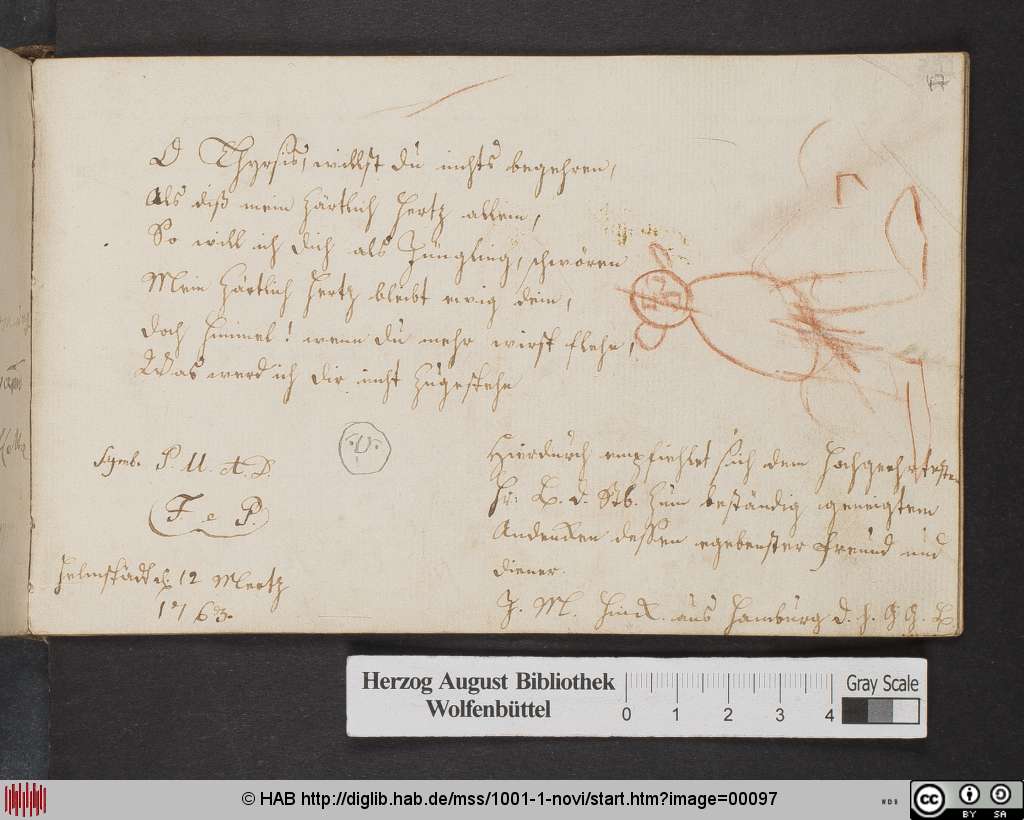 47
O Thyrsis, willst du nichts begehren,
Als diß mein zärtlich Hertz allein,
So will ich dich als Jüngling, schwören
Mein zärtlich Hertz bleibt ewig dein,
Doch Himmel! wenn du mehr wirst flehn,
Was werd ich dir nicht zugestehn
Symb. P. U. A. D.
F e P.
Helmstädt d. 12 Mertz
1763.
Hierdurch empfiehlet sich dem Hochgeehrtesten
Hr. B. v. Stb. zum beständig geneigtem
Andenken dessen ergebenster Freund und
Diener.
J. M. aus Hamburg d. h. G G. B
Herzog August Bibliothek
Wolfenbüttel
0 1 2 3 4
Gray Scale
© HAB http://diglib.hab.de/mss/1001-1-novi/start.htm?image=00097
cc BY SA